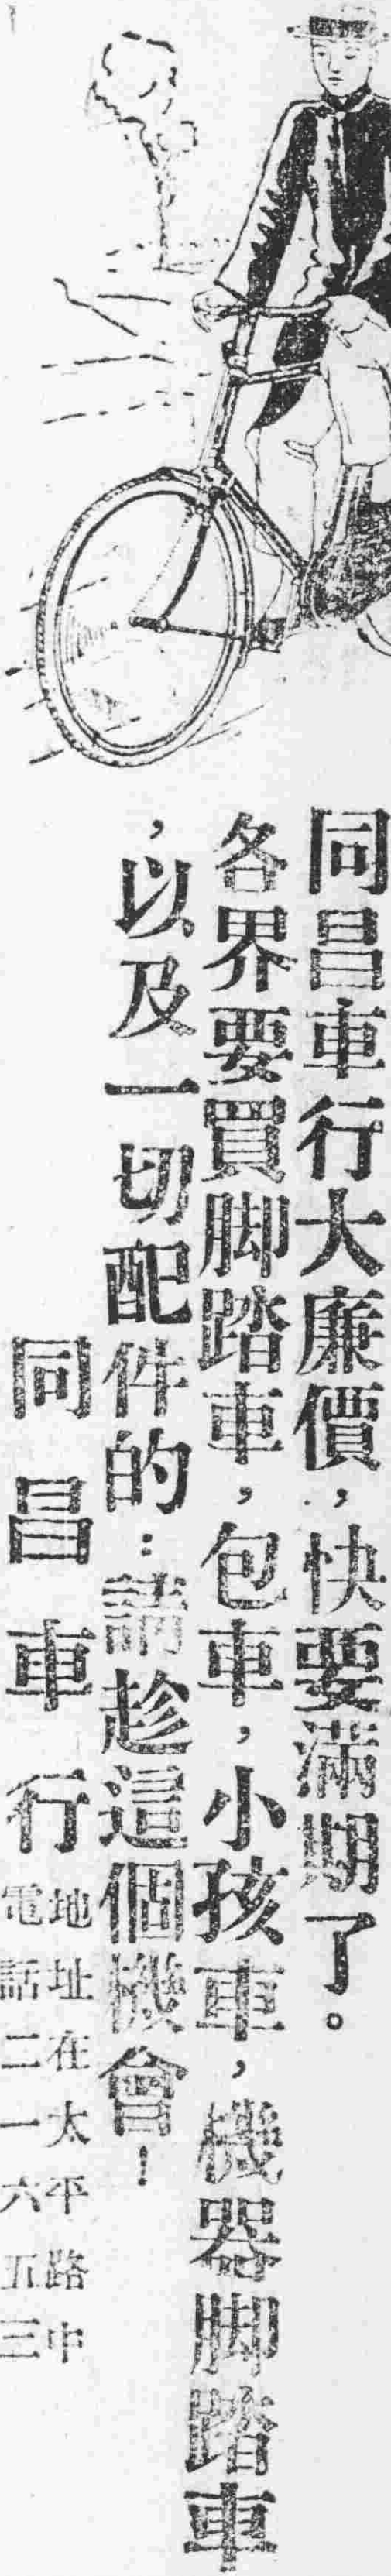 同昌車行大廉價，快要滿期了。
各界要買脚踏車，包車，小孩車，機器脚踏車
，以及一切配件的：請趁這個機會！
同昌車行
地址在太平路中
電話二一六五三